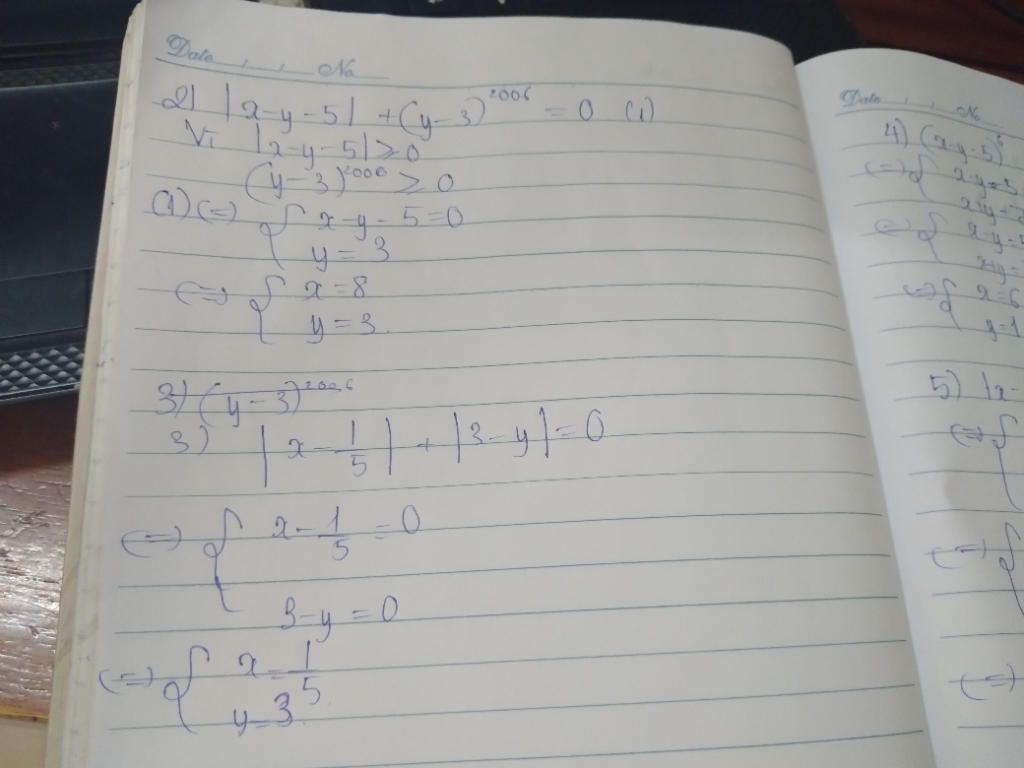 Date . . . No
2) |x-y-5| + (y-3)^2006 = 0 (1)
Vì |x-y-5| ≥ 0
(y-3)^2006 ≥ 0
(1) (=) { x-y-5=0
y=3
(=) { x=8
y=3
3) (y-3)^2006
3) |x-1/5| + |3-y| = 0
(=) { x-1/5=0
3-y=0
(=) { x=1/5
y=3
Date . . . No
4) (x-y-5)
(=) { x-y=5
x+y=
(=) { x-y=
x+y=
(=) { x=6
y=1
5) |x-
(=) {
(=) {
(=)